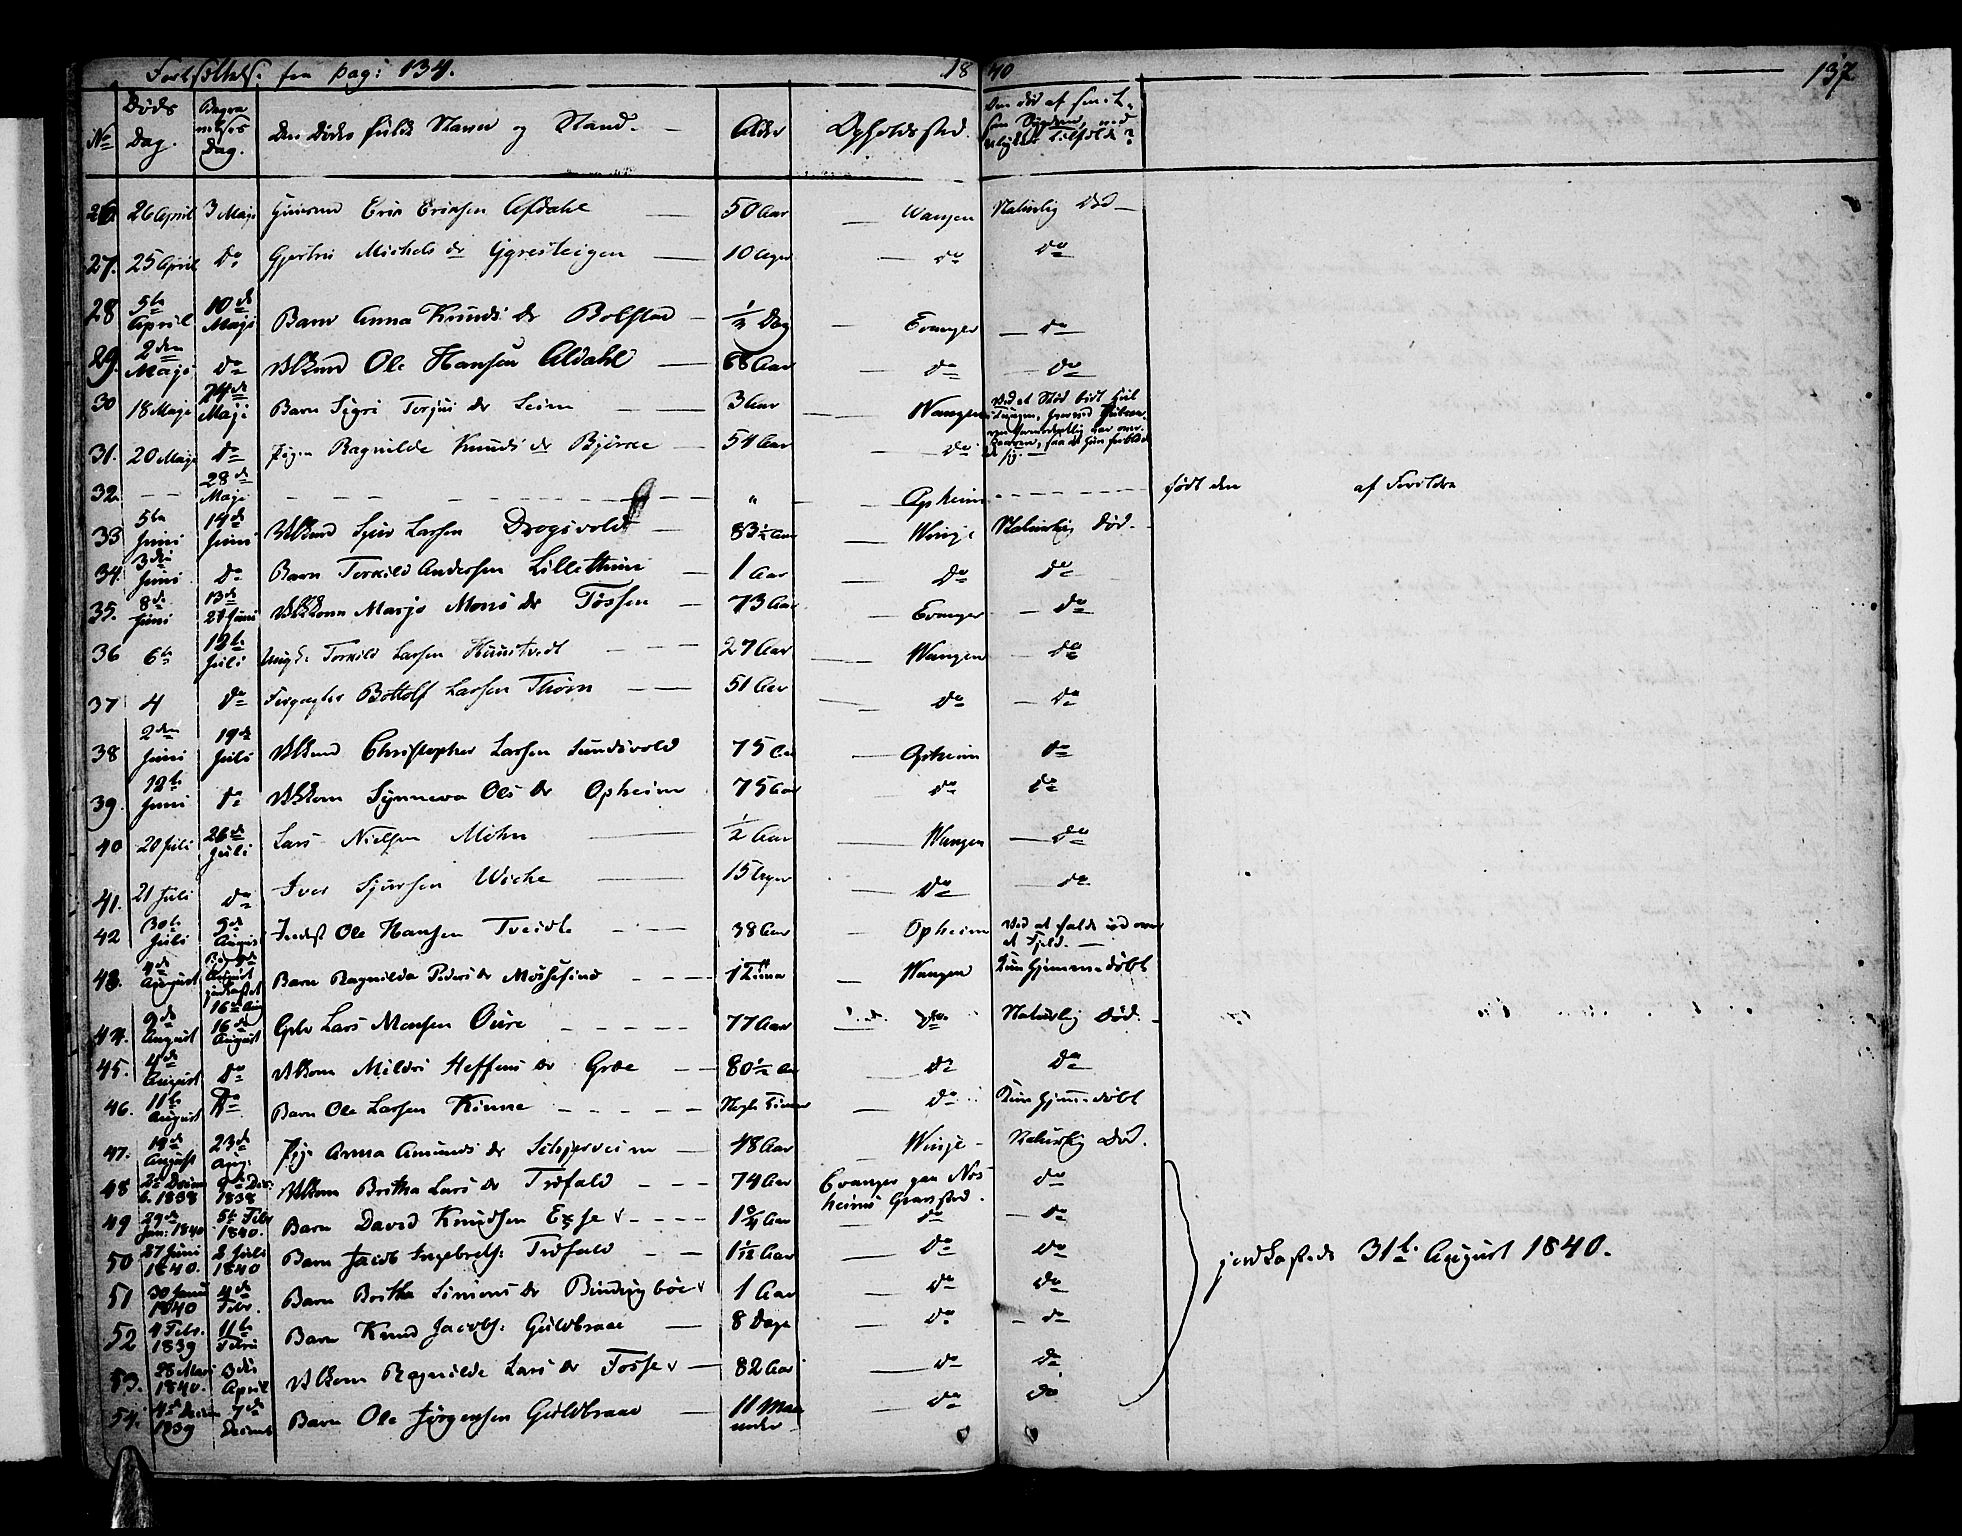 Fortsættelse fra pag: 134. 1840 137
No Døds Dag. Begravelses Dag. Den Dødes fulde Navn og Stand. Alder Opholdssted. Om død af
26 26 April 3 Maji Eric Ericsen Afdahl 50 Aar Wangen Naturlig Død
27. 25 April do Gjertru Michels dr Ygresteigen 10 Uger do do
28 5te April 10de Maji Barn Anna Knuds dr Bolstad ½ Dag Evanger do
29. 2den Maji do Ole Hansen Aldahl 68 Aar do do
30 18 Maji 24de Maji Barn Sigri Torjus dr Seim 3 Aar Wangen Ved et Stød
31. 20 Maji do Pigen Ragnilde Knuds dr Bjørke 54 Aar do
32. 28de Maji " Opheim født den af Foreldre
33 5te Juni 14de Juni Sjur Larsen Drogsvold 83½ Aar Winje Naturlig Død.
34. 3die Juni do Barn Torkild Andersen Lillethun 1 Aar do do
35. 8de Juni 13de 21 Juni Marjo Mons dr Fossen 73 Aar Evanger do
36 6te 12te Juli Ungk. Torkild Larsen Hunstvedt 27 Aar Wangen do
37 4 do Bottolf Larsen Thorn 51 Aar do do
38 2den Juni 19de Juli Christopher Larsen Sundsvold 75 Aar Opheim do
39. 12te Juni do Synneva Ols dr Opheim 75 Aar do do
40 20 Juli 26de Juli Lars Nielsen Mohn ½ Aar Wangen do
41. 21 Juli do Iver Sjursen Wiche 15 Uger do do
42 30te Juli 9de August Inderst Ole Hansen Tveite 38 Aar Opheim Ved at falde ud over et Fjeld.
43. 4de August 16de Aug Barn Ragnilda Peders dr Mossefind 1 Time Wangen Kun hjemmedøbt
44. 9de August 16de August Lars Monsen Øure 77 Aar do Naturlig Død.
45. 4de August do Mildri Steffens dr Græe 80½ Aar do do
46. 11te August do Barn Ole Larsen Kinne Nogle Timer do Kun hjemmedøbt
47. 19de August 23de Aug: Pige Anna Amunds dr Schjerveim 48 Aar Winje Naturlig Død.
48 1838 1838 Britha Lars dr Trefald 74 Aar Evanger paa Nosheims Gravsted. do
49 29de Jan: 1840 5te Febr 1840. Barn David Knudsen Exse 1¾ Aar do do
50 27 Juni 1840. 2 Juli 1840 Barn Jacob Ingebrets: Trefald 1 1/12 Aar do do
jordkastede 31te August 1840.
51 30 Janu 1840 4de Febr. Barn Britha Simons dr Bindingbøe 1 Aar do do
52 4 Febr. 1839 11te Febru Barn Knud Jacobs: Guldbraae 8 Dage do do
53. 28 Mars 1840. 3die April Ragnilde Lars dr Fosse 82 Aar do do
54. 4de Decem 1839 7de Decemb Barn Ole Jørgensen Guldbraae 11 Maaneder do do